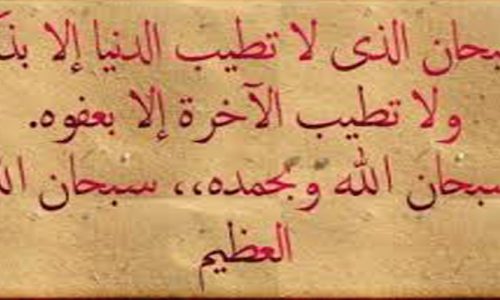 سبحان الذى لا تطيب الدنيا إلا بذك
ولا تطيب الآخرة إلا بعفوه.
سبحان الله وبحمده،، سبحان الل
العظيم